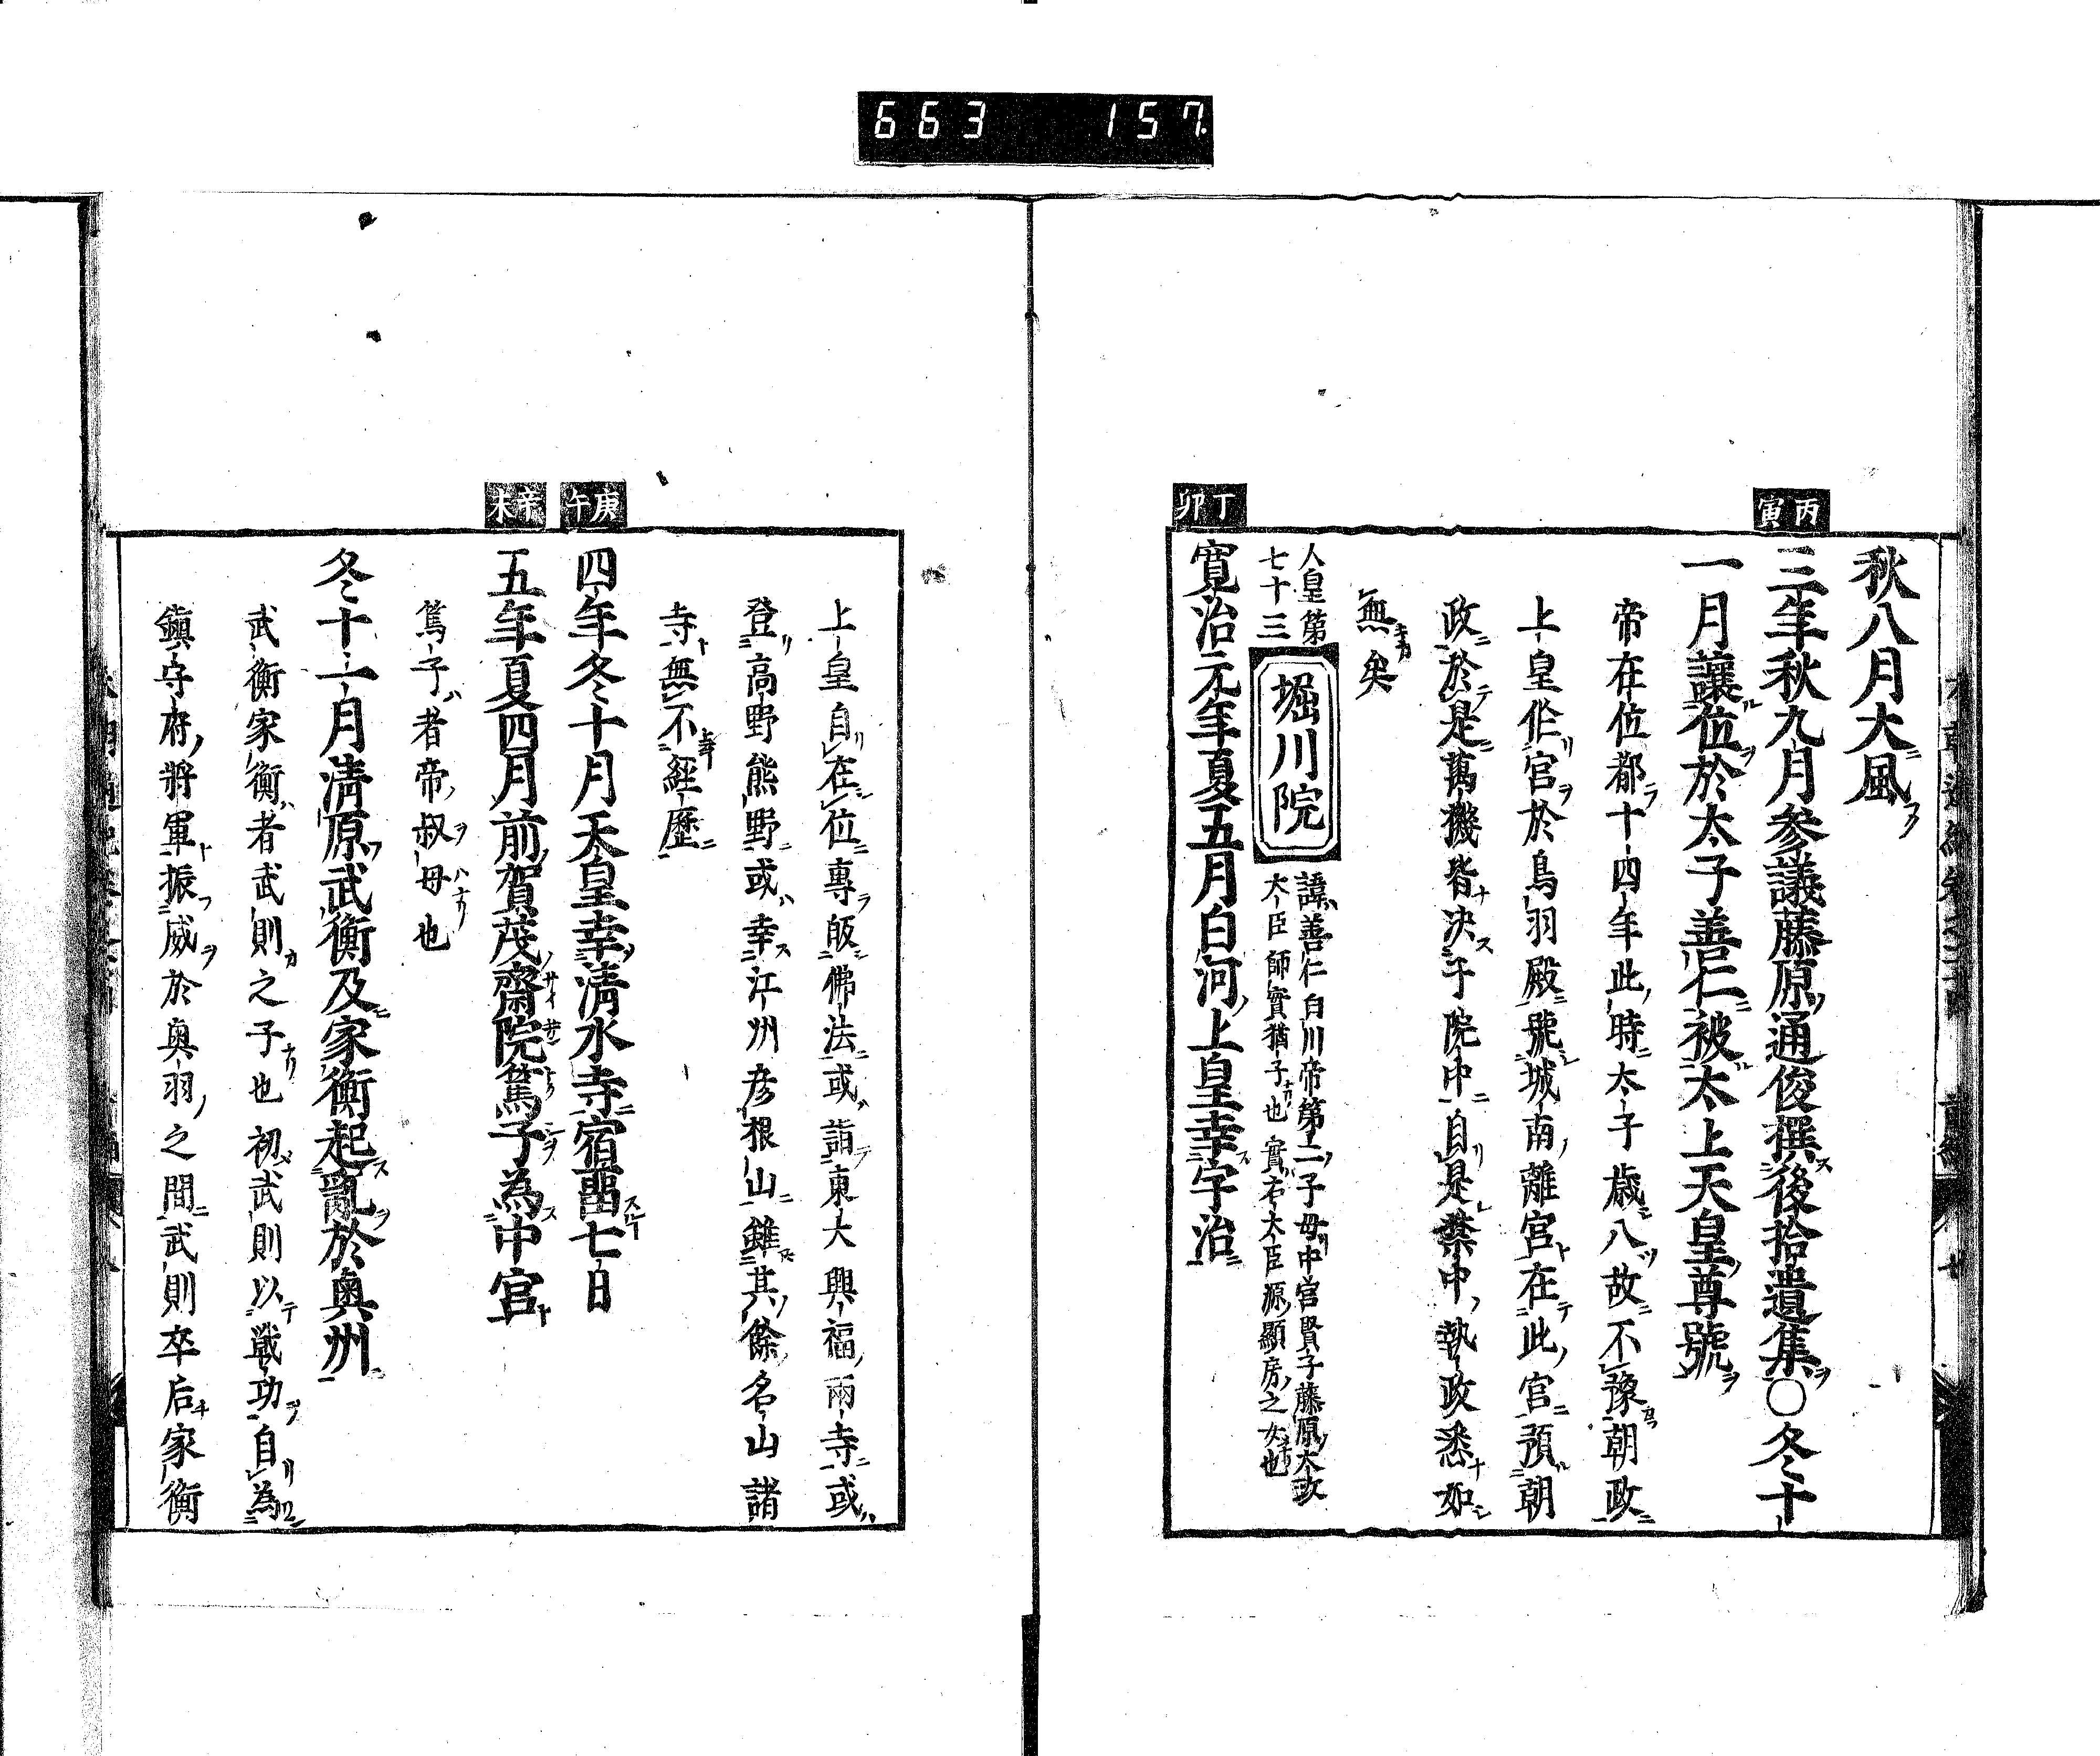 663 157
丙寅
秋八月大風
三年秋九月参議藤原通俊撰後拾遺集〇冬十
一月讓位於太子善仁被太上天皇尊號
帝在位都十四年此時太子歳八故不豫朝政
上皇作官於鳥羽殿號城南離宮在此宮預朝
政於是萬機皆决于院中自是禁中執政悉如
無矣
人皇第
七十三
堀川院
諱善仁白川帝第二子母中宮賢子藤原太政
大臣師實猶子也實右大臣源顯房之女也
丁卯
寛治元年夏五月白河上皇幸宇治
上皇自在位專皈佛法或詣東大興福兩寺或
登高野熊野或幸江州彦根山雖其餘名山諸
寺無不經歷
庚午
四年冬十月天皇幸清水寺宿畱七日
辛未
五年夏四月前賀茂齋院篤子為中宮
篤子者帝叔母也
冬十一月清原武衡及家衡起亂於奥州
武衡家衡者武則之子也初武則以戰功自為
鎮守府將軍振威於奥羽之間武則卒后家衡